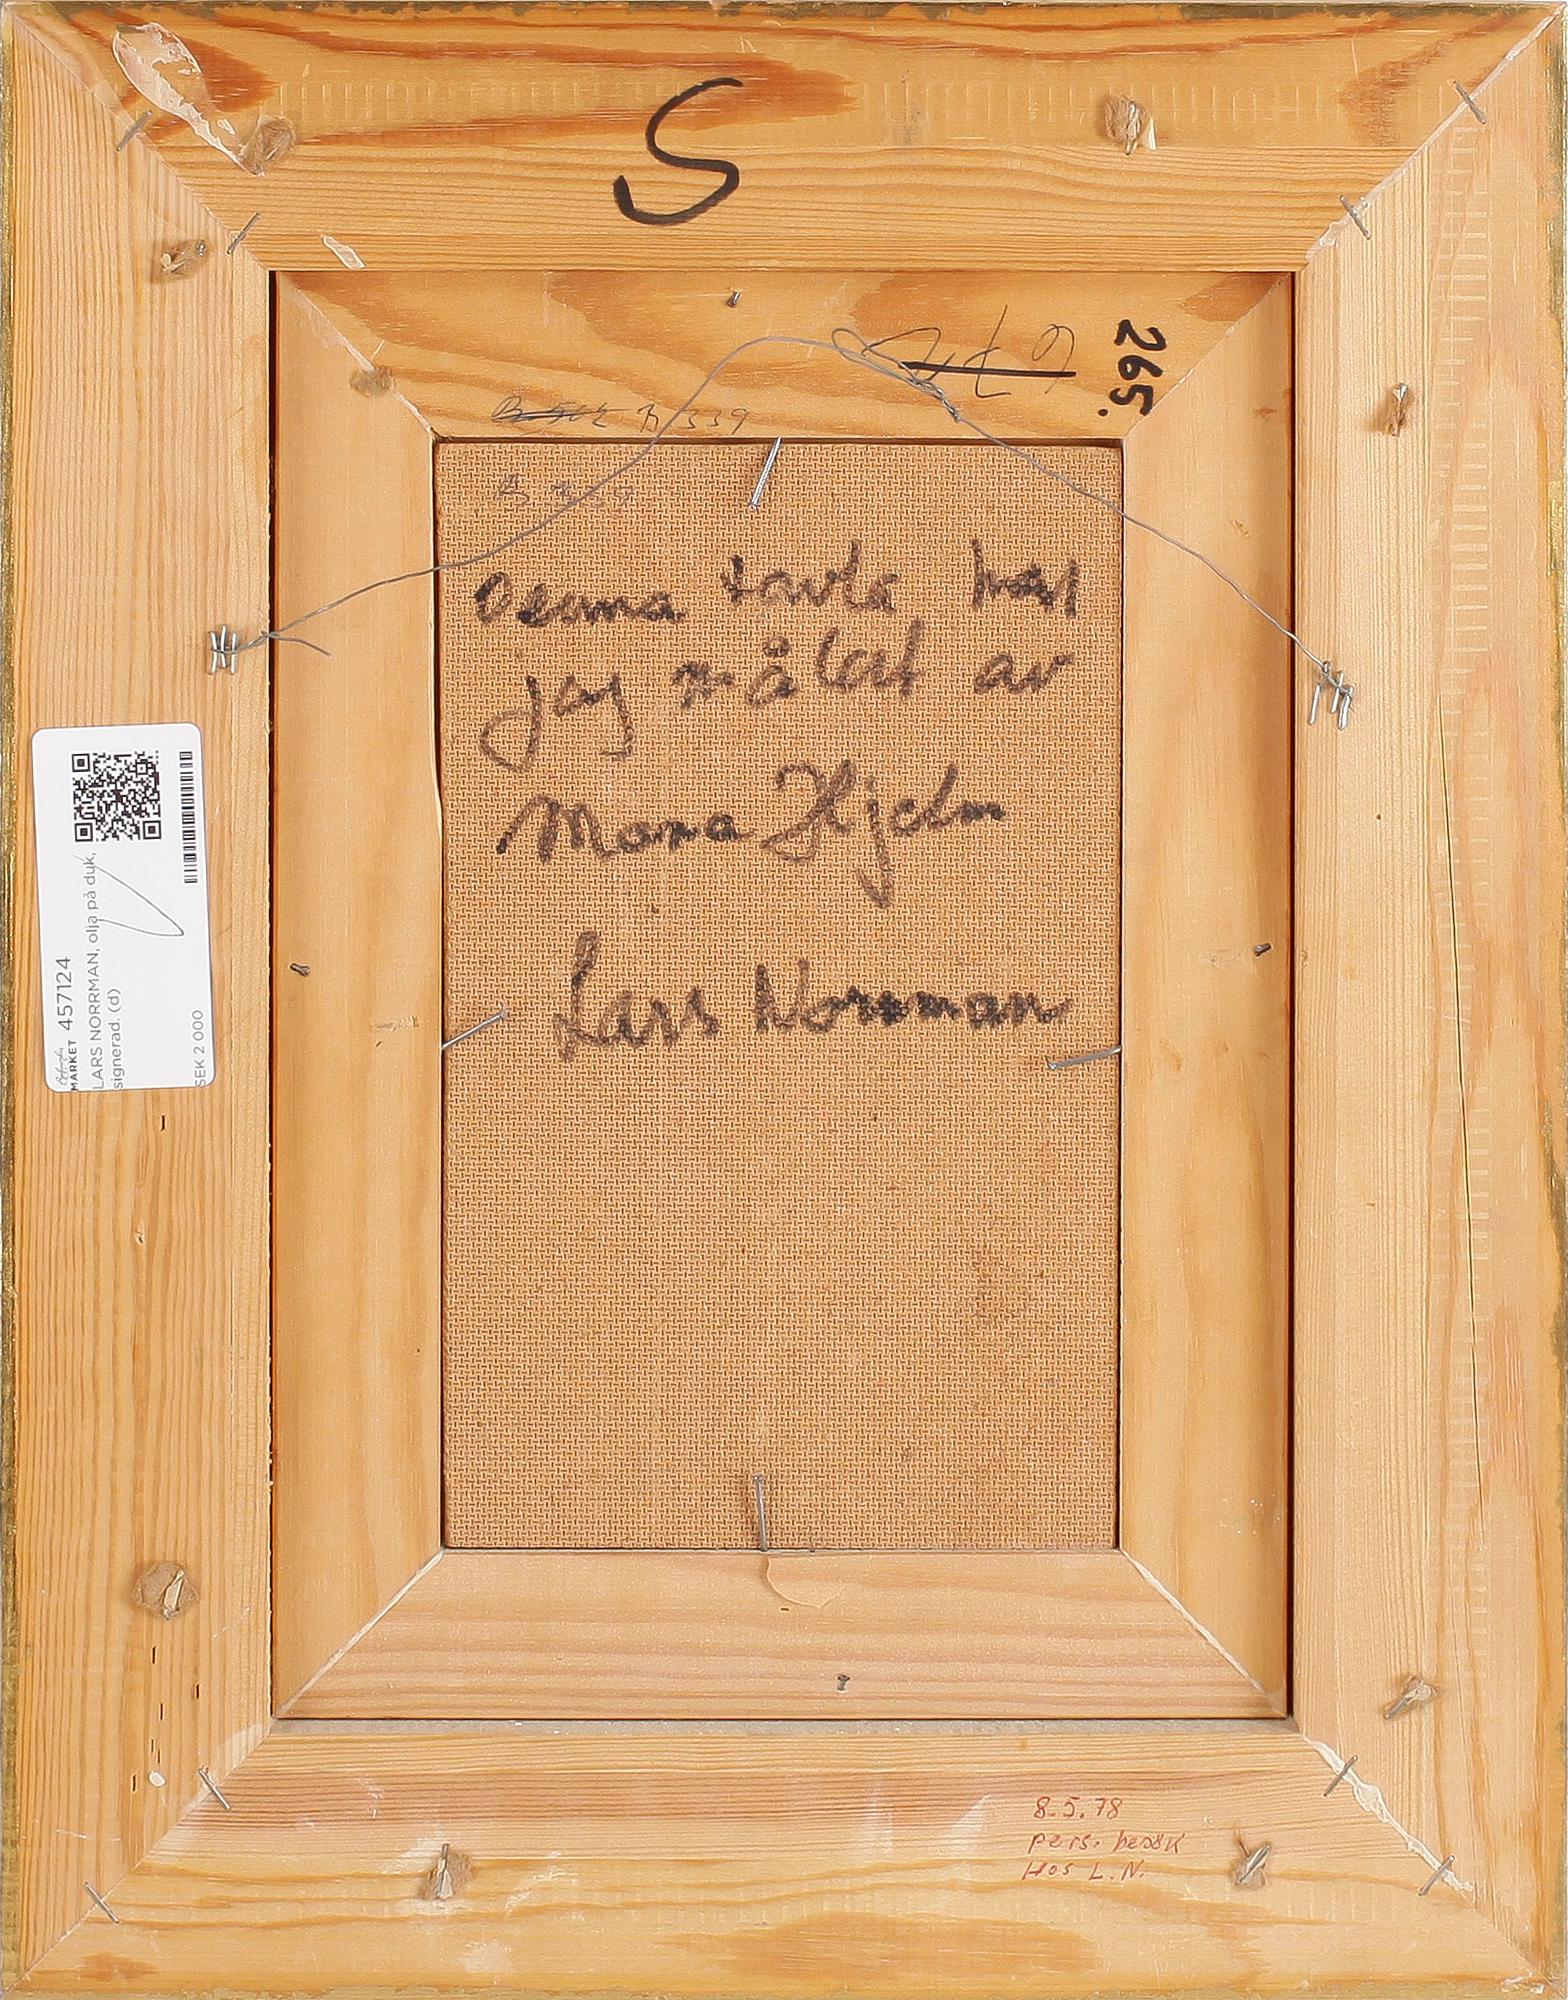 S
265.
B 339
Denna tavla har
jag målat av
Mona Hjelm
Lars Norrman
MARKET 457124
LARS NORRMAN, olja på duk,
signerad. (d)
SEK 2 000
8-5.78
pers. besök
Hos L.N.